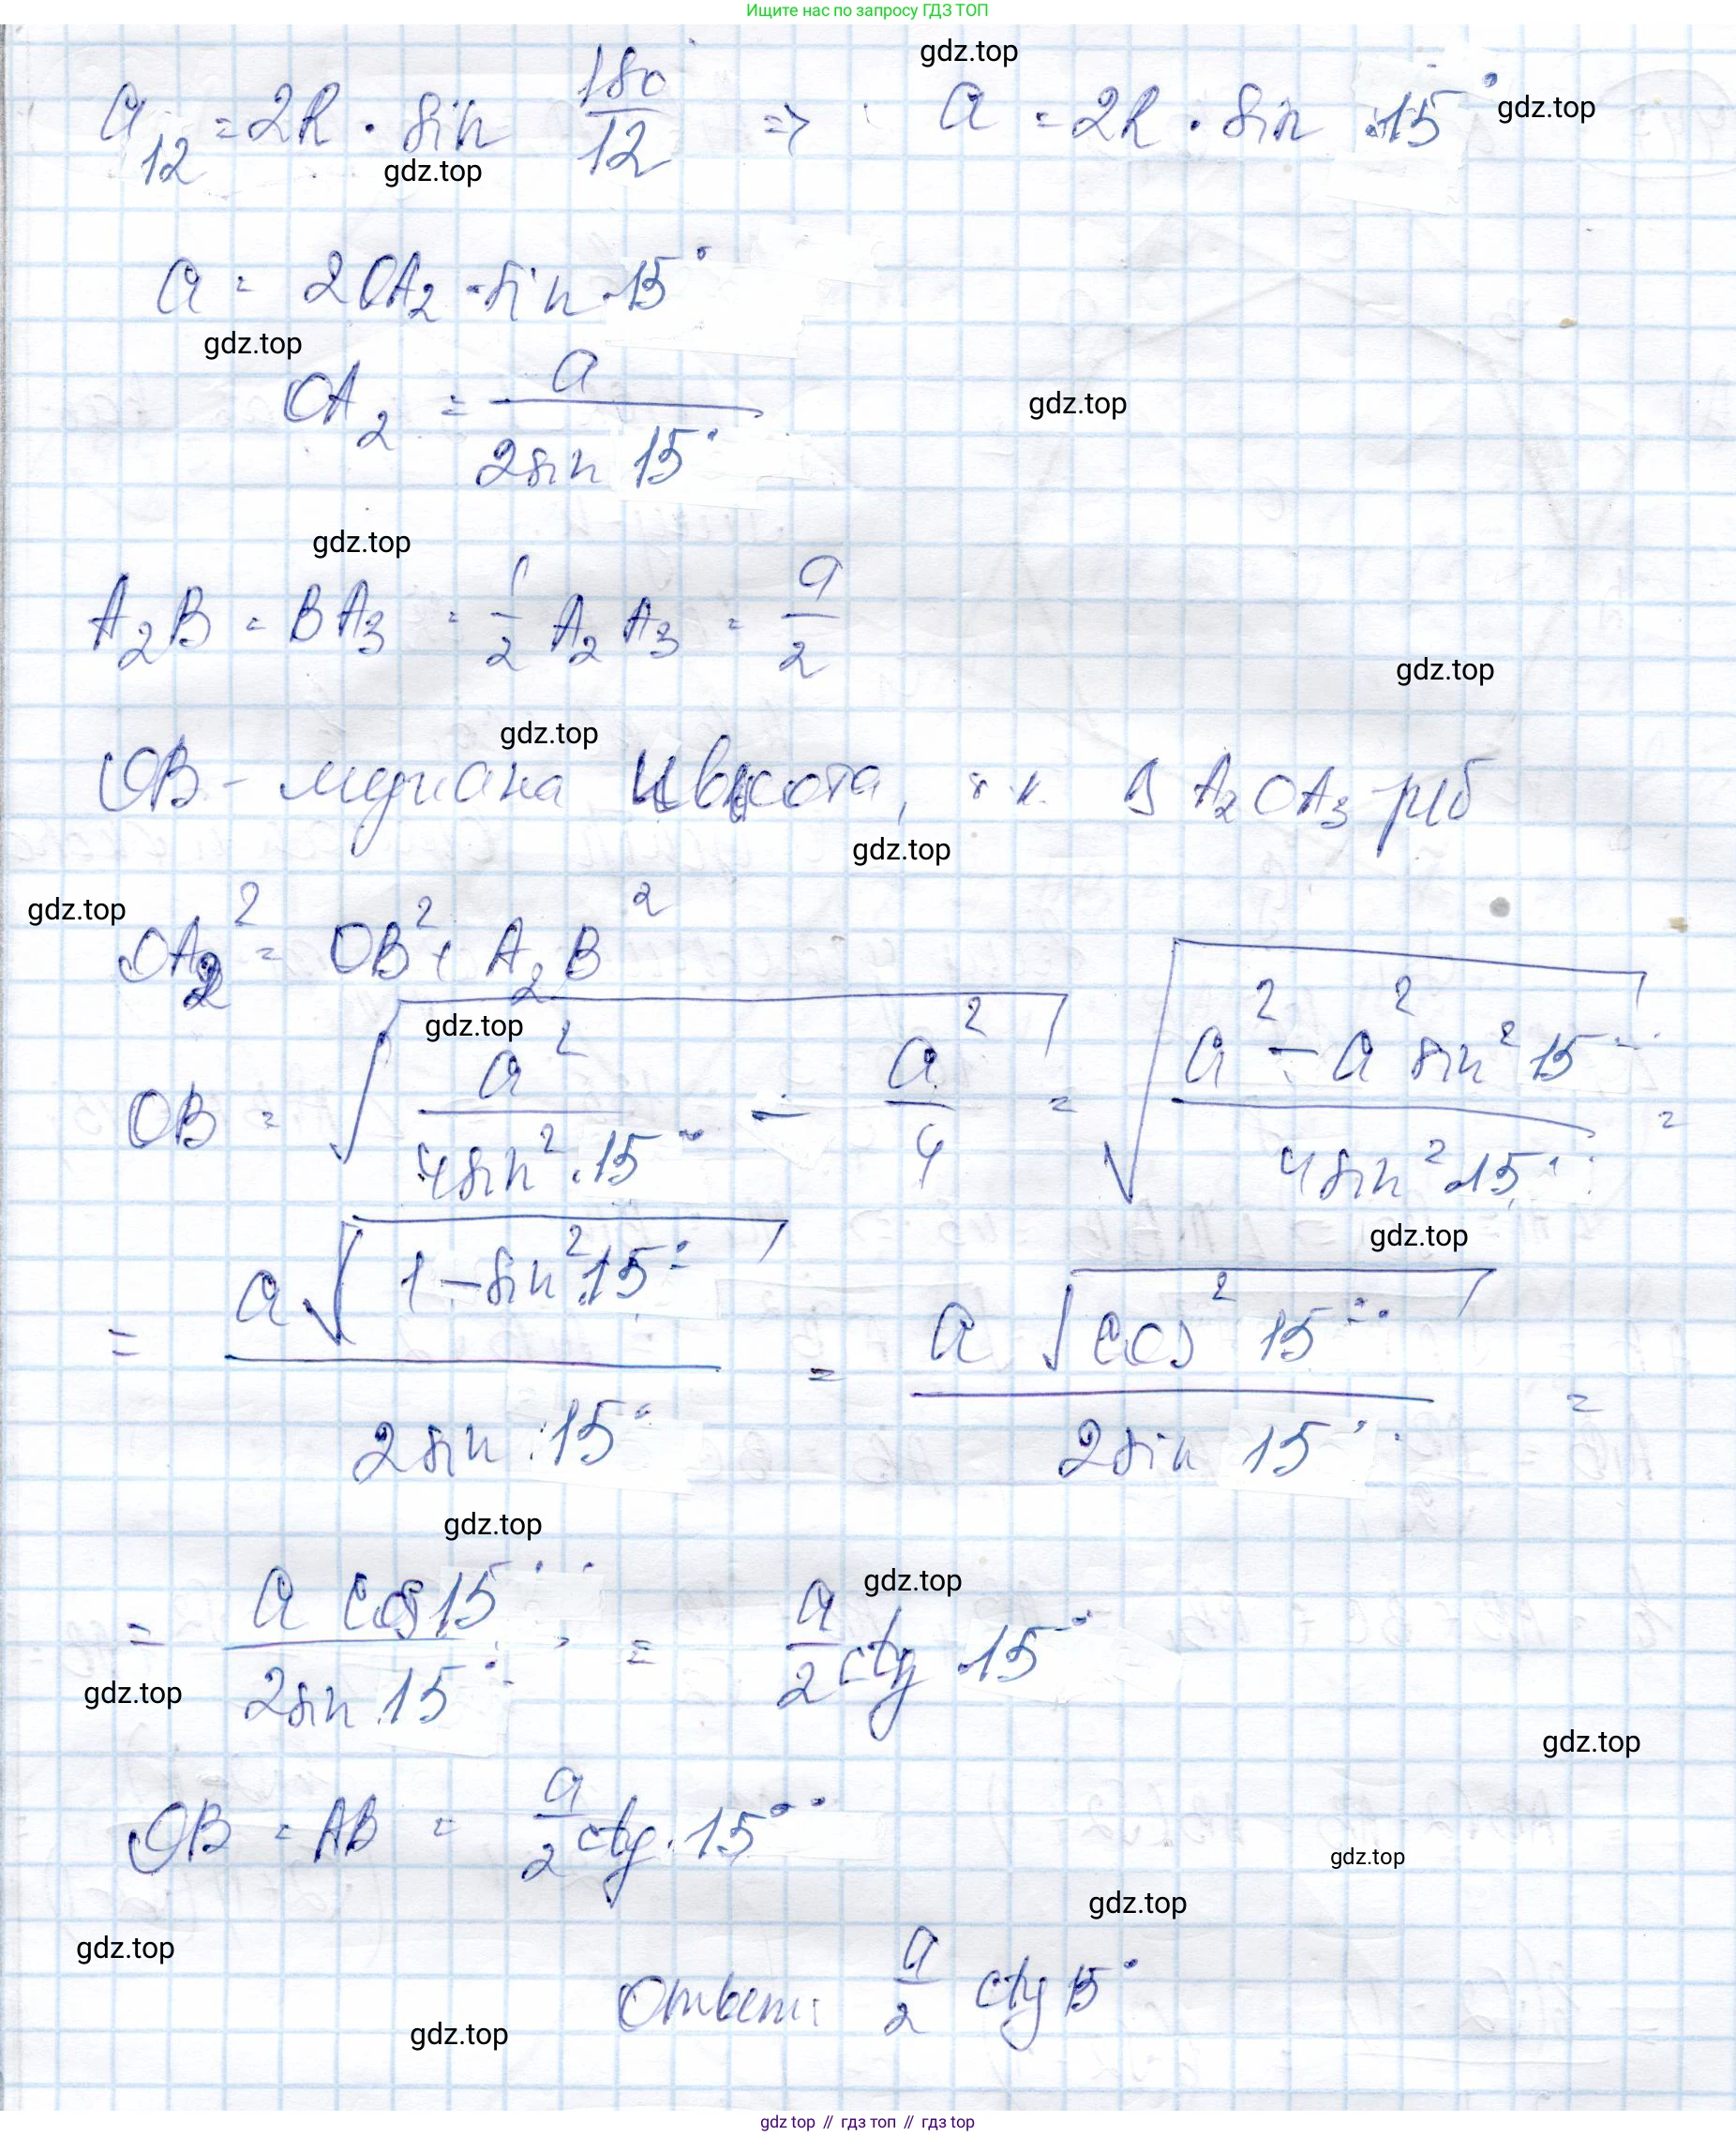 Ищите нас по запросу ГДЗ ТОП
gdz.top
a₁₂ = 2R · sin 180/12 => a = 2R · sin 15°
gdz.top
gdz.top
a = 2OA₂ · sin 15°
gdz.top
OA₂ = a/(2sin 15°)
gdz.top
gdz.top
A₂B = BA₃ = 1/2 A₂A₃ = a/2
gdz.top
gdz.top
OB - медиана и высота, т.к. в A₂OA₃ - р/б
gdz.top
gdz.top
OA₂² = OB² + A₂B²
gdz.top
OB = √(a²/(4sin² 15°) − a²/4) = √((a² − a² sin² 15°)/(4sin² 15°)) =
gdz.top
= a√(1 − sin² 15°)/(2sin 15°) = a√(cos² 15°)/(2sin 15°) =
gdz.top
gdz.top
= a cos 15°/(2sin 15°) = a/2 ctg 15°
gdz.top
gdz.top
OB = AB = a/2 ctg 15°
gdz.top
gdz.top
gdz.top
Ответ: a/2 ctg 15°
gdz.top
gdz top // гдз топ // gdz top